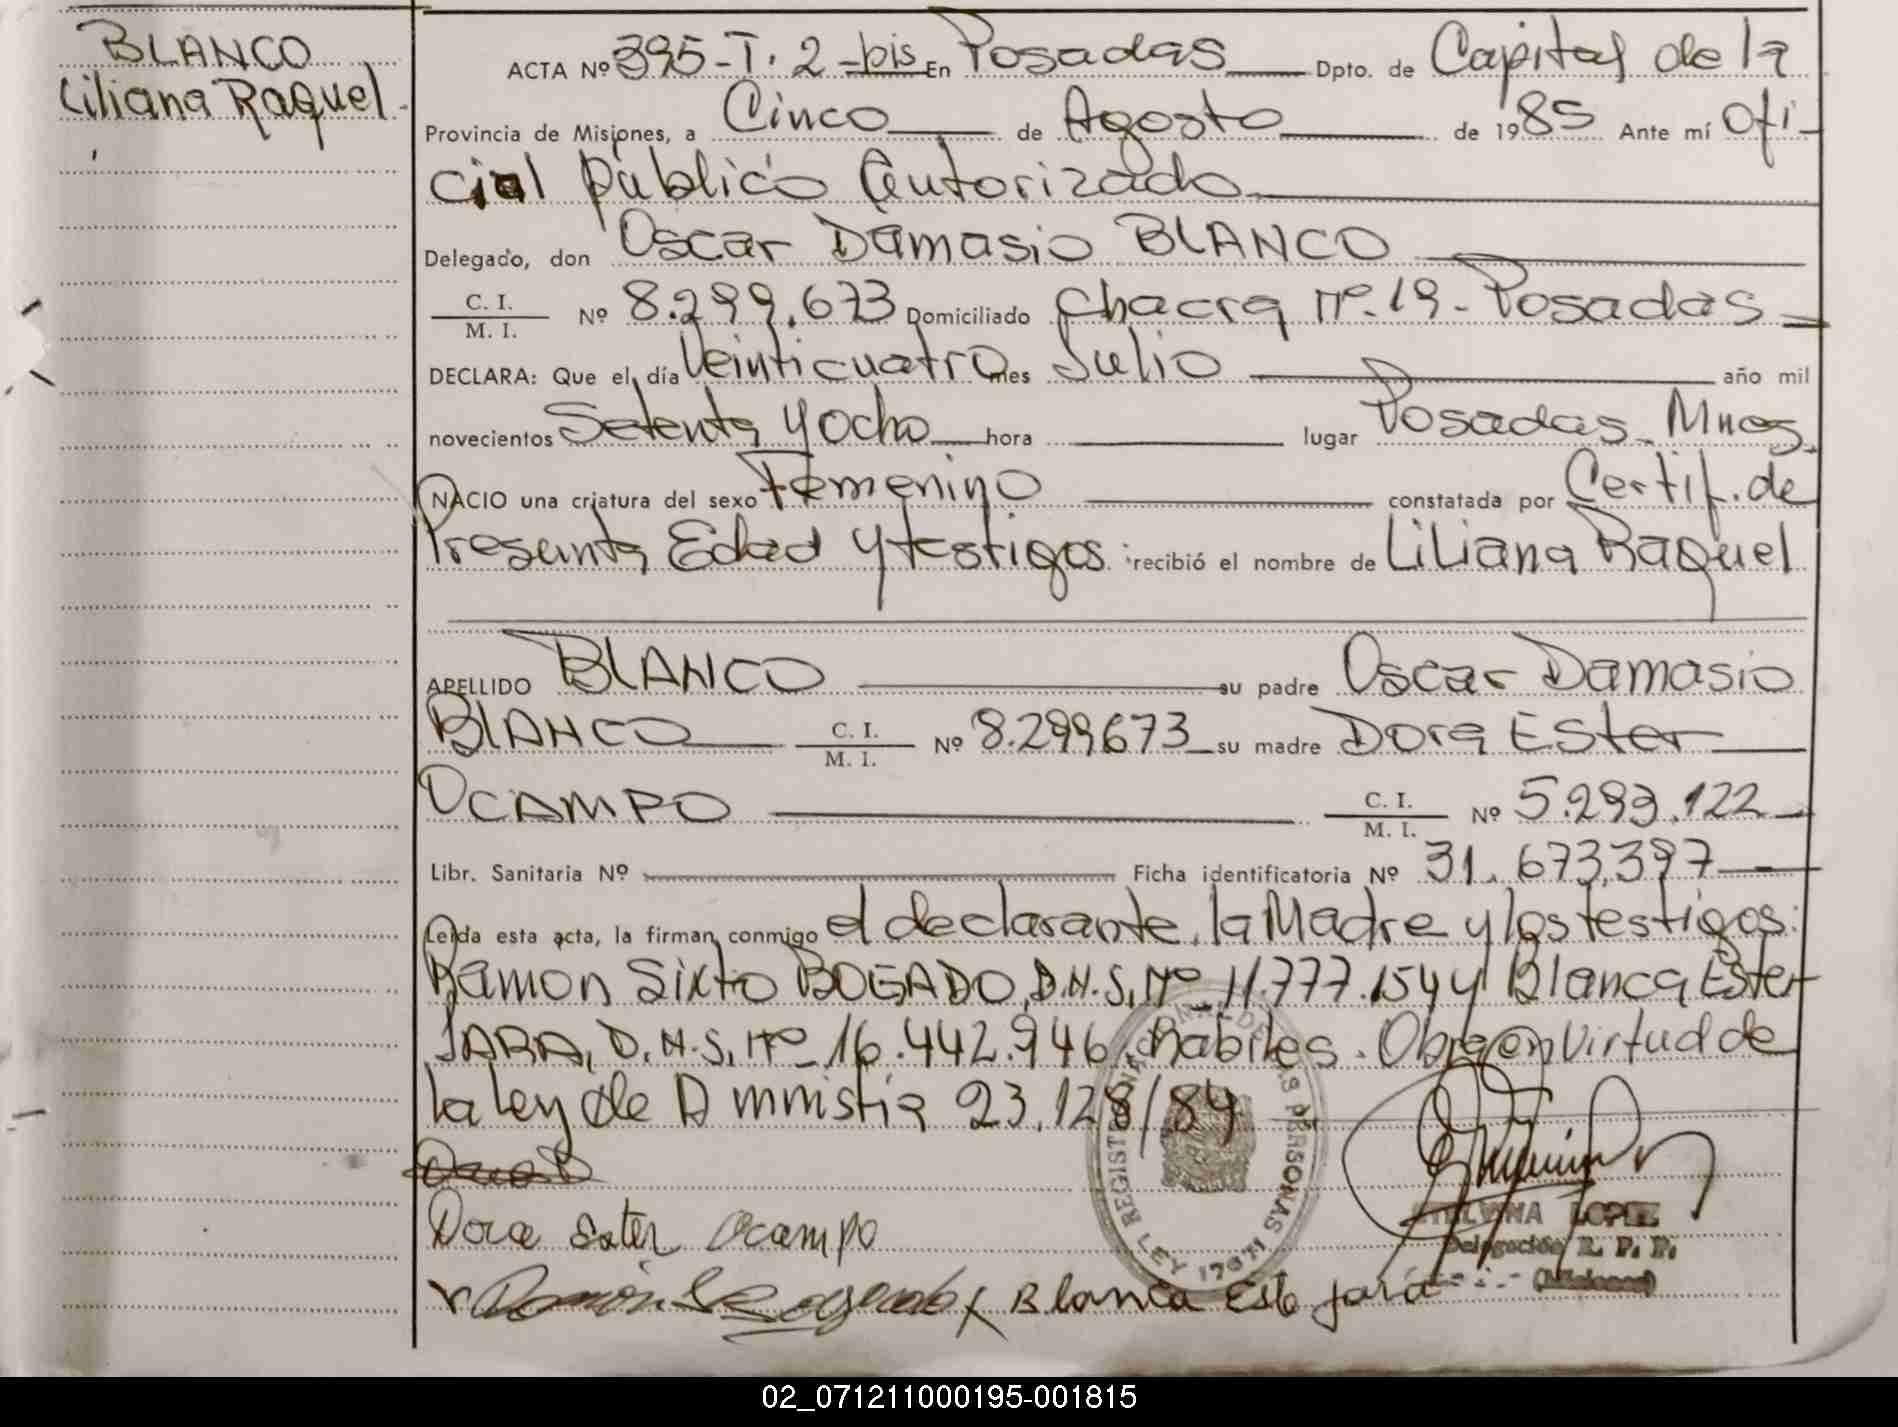 BLANCO
Liliana Raquel
ACTA Nº 395-T. 2-bis En Posadas Dpto. de Capital de la
Provincia de Misiones, a Cinco de Agosto de 1985 Ante mí Ofi-
cial público Autorizado
Delegado, don Oscar Damasio BLANCO
C. I.
M. I. Nº 8.299.673 Domiciliado Chacra Nº.19-Posadas
DECLARA: Que el día Veinticuatro mes Julio año mil
novecientos Setenta y ocho hora lugar Posadas-Mnes.
NACIO una criatura del sexo Femenino constatada por Certif. de
Presunta Edad y testigos. recibió el nombre de Liliana Raquel
APELLIDO BLANCO su padre Oscar Damasio
BLANCO C. I.
M. I. Nº 8.299673 su madre Dora Ester
OCAMPO C. I.
M. I. Nº 5.293.122
Libr. Sanitaria Nº Ficha identificatoria Nº 31.673.397
Leída esta acta, la firman conmigo el declarante, la Madre y los testigos:
Ramon Sixto BOGADO, D.N.S, Nº 11.777.154 y Blanca Ester
JARA, D.N.S, Nº 16.442.946, habiles. Obra en virtud de
la Ley de Amnistia 23.128/84
Dora Ester Ocampo
Blanca Este jara
REGISTRO NACIONAL DE LAS PERSONAS
LEY 17671
LOPEZ
Delegación R. P. P.
(Misiones)
02_071211000195-001815